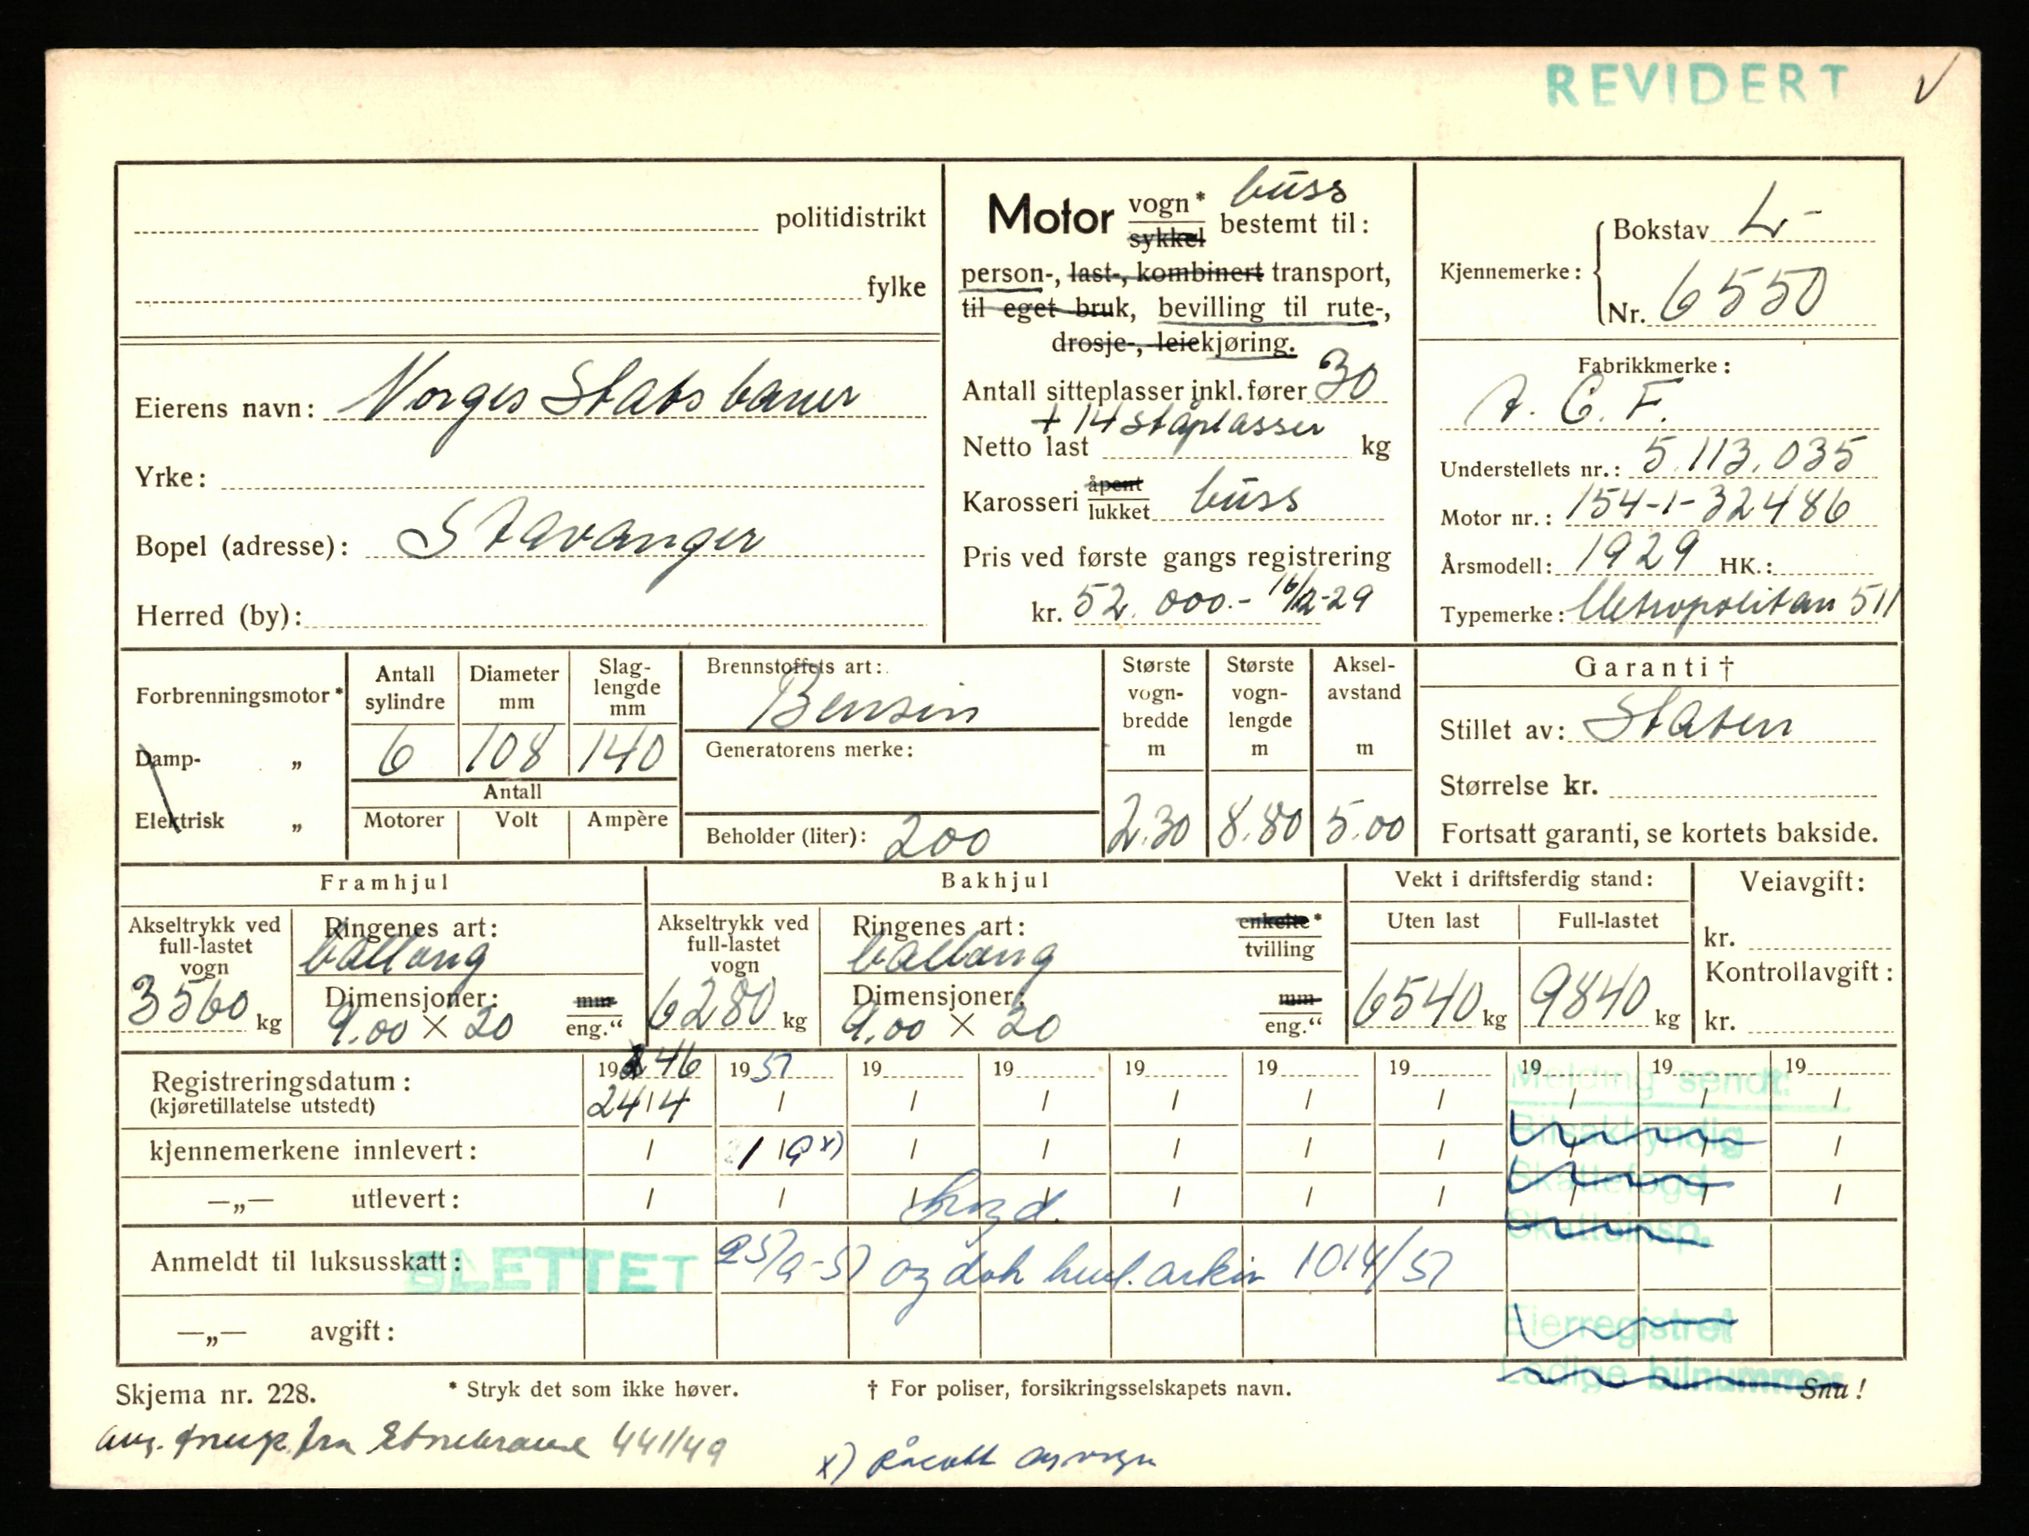 REVIDERT
politidistrikt
fylke
Eierens navn: Norges Statsbaner
Yrke:
Bopel (adresse): Stavanger
Herred (by):
Motor vogn* sykkel bestemt til: buss
person-, last-, kombinert transport,
til eget bruk, bevilling til rute-,
drosje-, leiekjøring.
Antall sitteplasser inkl. fører 30
+ 14 ståplasser
Netto last kg
Karosseri åpent lukket buss
Pris ved første gangs registrering
kr. 52.000.- 16/12-29
Kjennemerke: Bokstav L-
Nr. 6550
Fabrikkmerke:
A. C. F.
Understellets nr.: 5.113.035
Motor nr.: 154-1-32486
Årsmodell: 1929 HK.:
Typemerke: Metropolitan 511
Forbrenningsmotor*
Damp- „
Elektrisk „
Antall sylindre
Diameter mm
Slaglengde mm
6 108 140
Antall
Motorer Volt Ampère
Brennstoffets art:
Bensin
Generatorens merke:
Beholder (liter): 200
Største vogn-bredde m
2.30
Største vogn-lengde m
8.80
Aksel-avstand m
5.00
Garanti †
Stillet av: Staten
Størrelse kr.
Fortsatt garanti, se kortets bakside.
Framhjul
Akseltrykk ved full-lastet vogn
3560 kg
Ringenes art:
ballong
Dimensjoner: mm eng.“
9.00 × 20
Bakhjul
Akseltrykk ved full-lastet vogn
6280 kg
Ringenes art: enkelte* tvilling
ballong
Dimensjoner: mm eng.“
9.00 × 20
Vekt i driftsferdig stand:
Uten last Full-lastet
6540 kg 9840 kg
Veiavgift:
kr.
Kontrollavgift:
kr.
Registreringsdatum: 1946 1951 19 19 19 19 19 19 19 19
(kjøretillatelse utstedt) 24/4 / / / / / / / / /
kjennemerkene innlevert: / / 9 x) / / / / / / / /
—„— utlevert: / / / / / / / / / /
Melding sendt:
Bilsakkyndig
Skattefogd
Skatteinsp.
Anmeldt til luksusskatt:
SLETTET 25/9-51 og dok hul. arkiv 1014/51
—„— avgift:
Eierregistret
Ledige bilnummer
Skjema nr. 228.
* Stryk det som ikke høver.
† For poliser, forsikringsselskapets navn.
Snu!
fra 441/49
x)